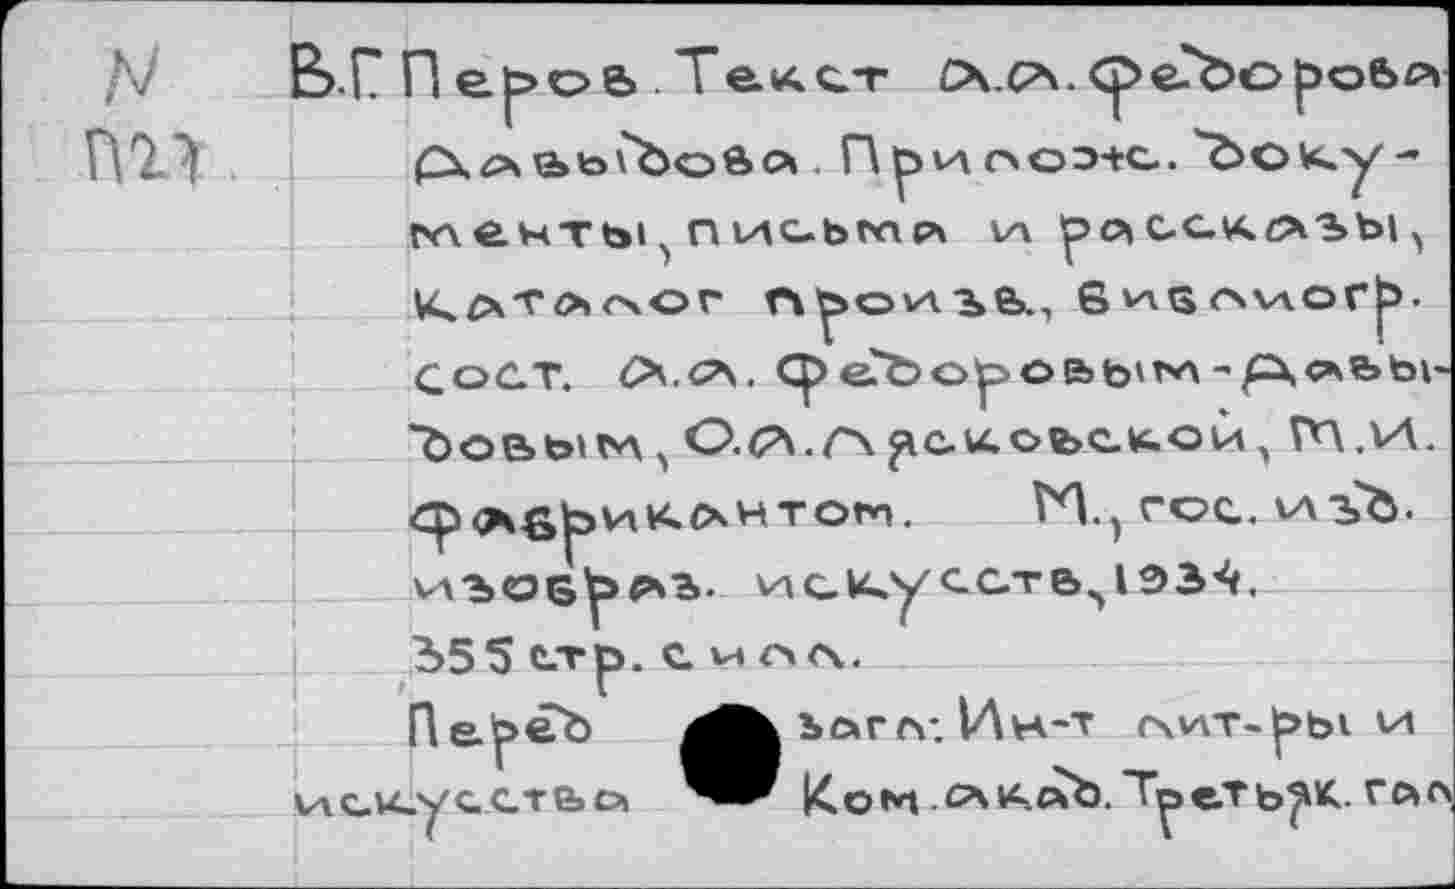 N В.Г. Перов. Текст А.А. Федорова
П27. Давыдова. Прилож. Доку-
менты, письма и рассказы,
каталог произв., библиогр.
сост. А.А. Федоровым-Давы-
довым, О.А. Лясковской, М.И.
Фабрикантом. М., гос. изд.
изобраз. искусств, 1934.
355 стр. с илл.
Перед загл: Ин-т лит-ры и
искусства Ком. акад. Третьяк. гал